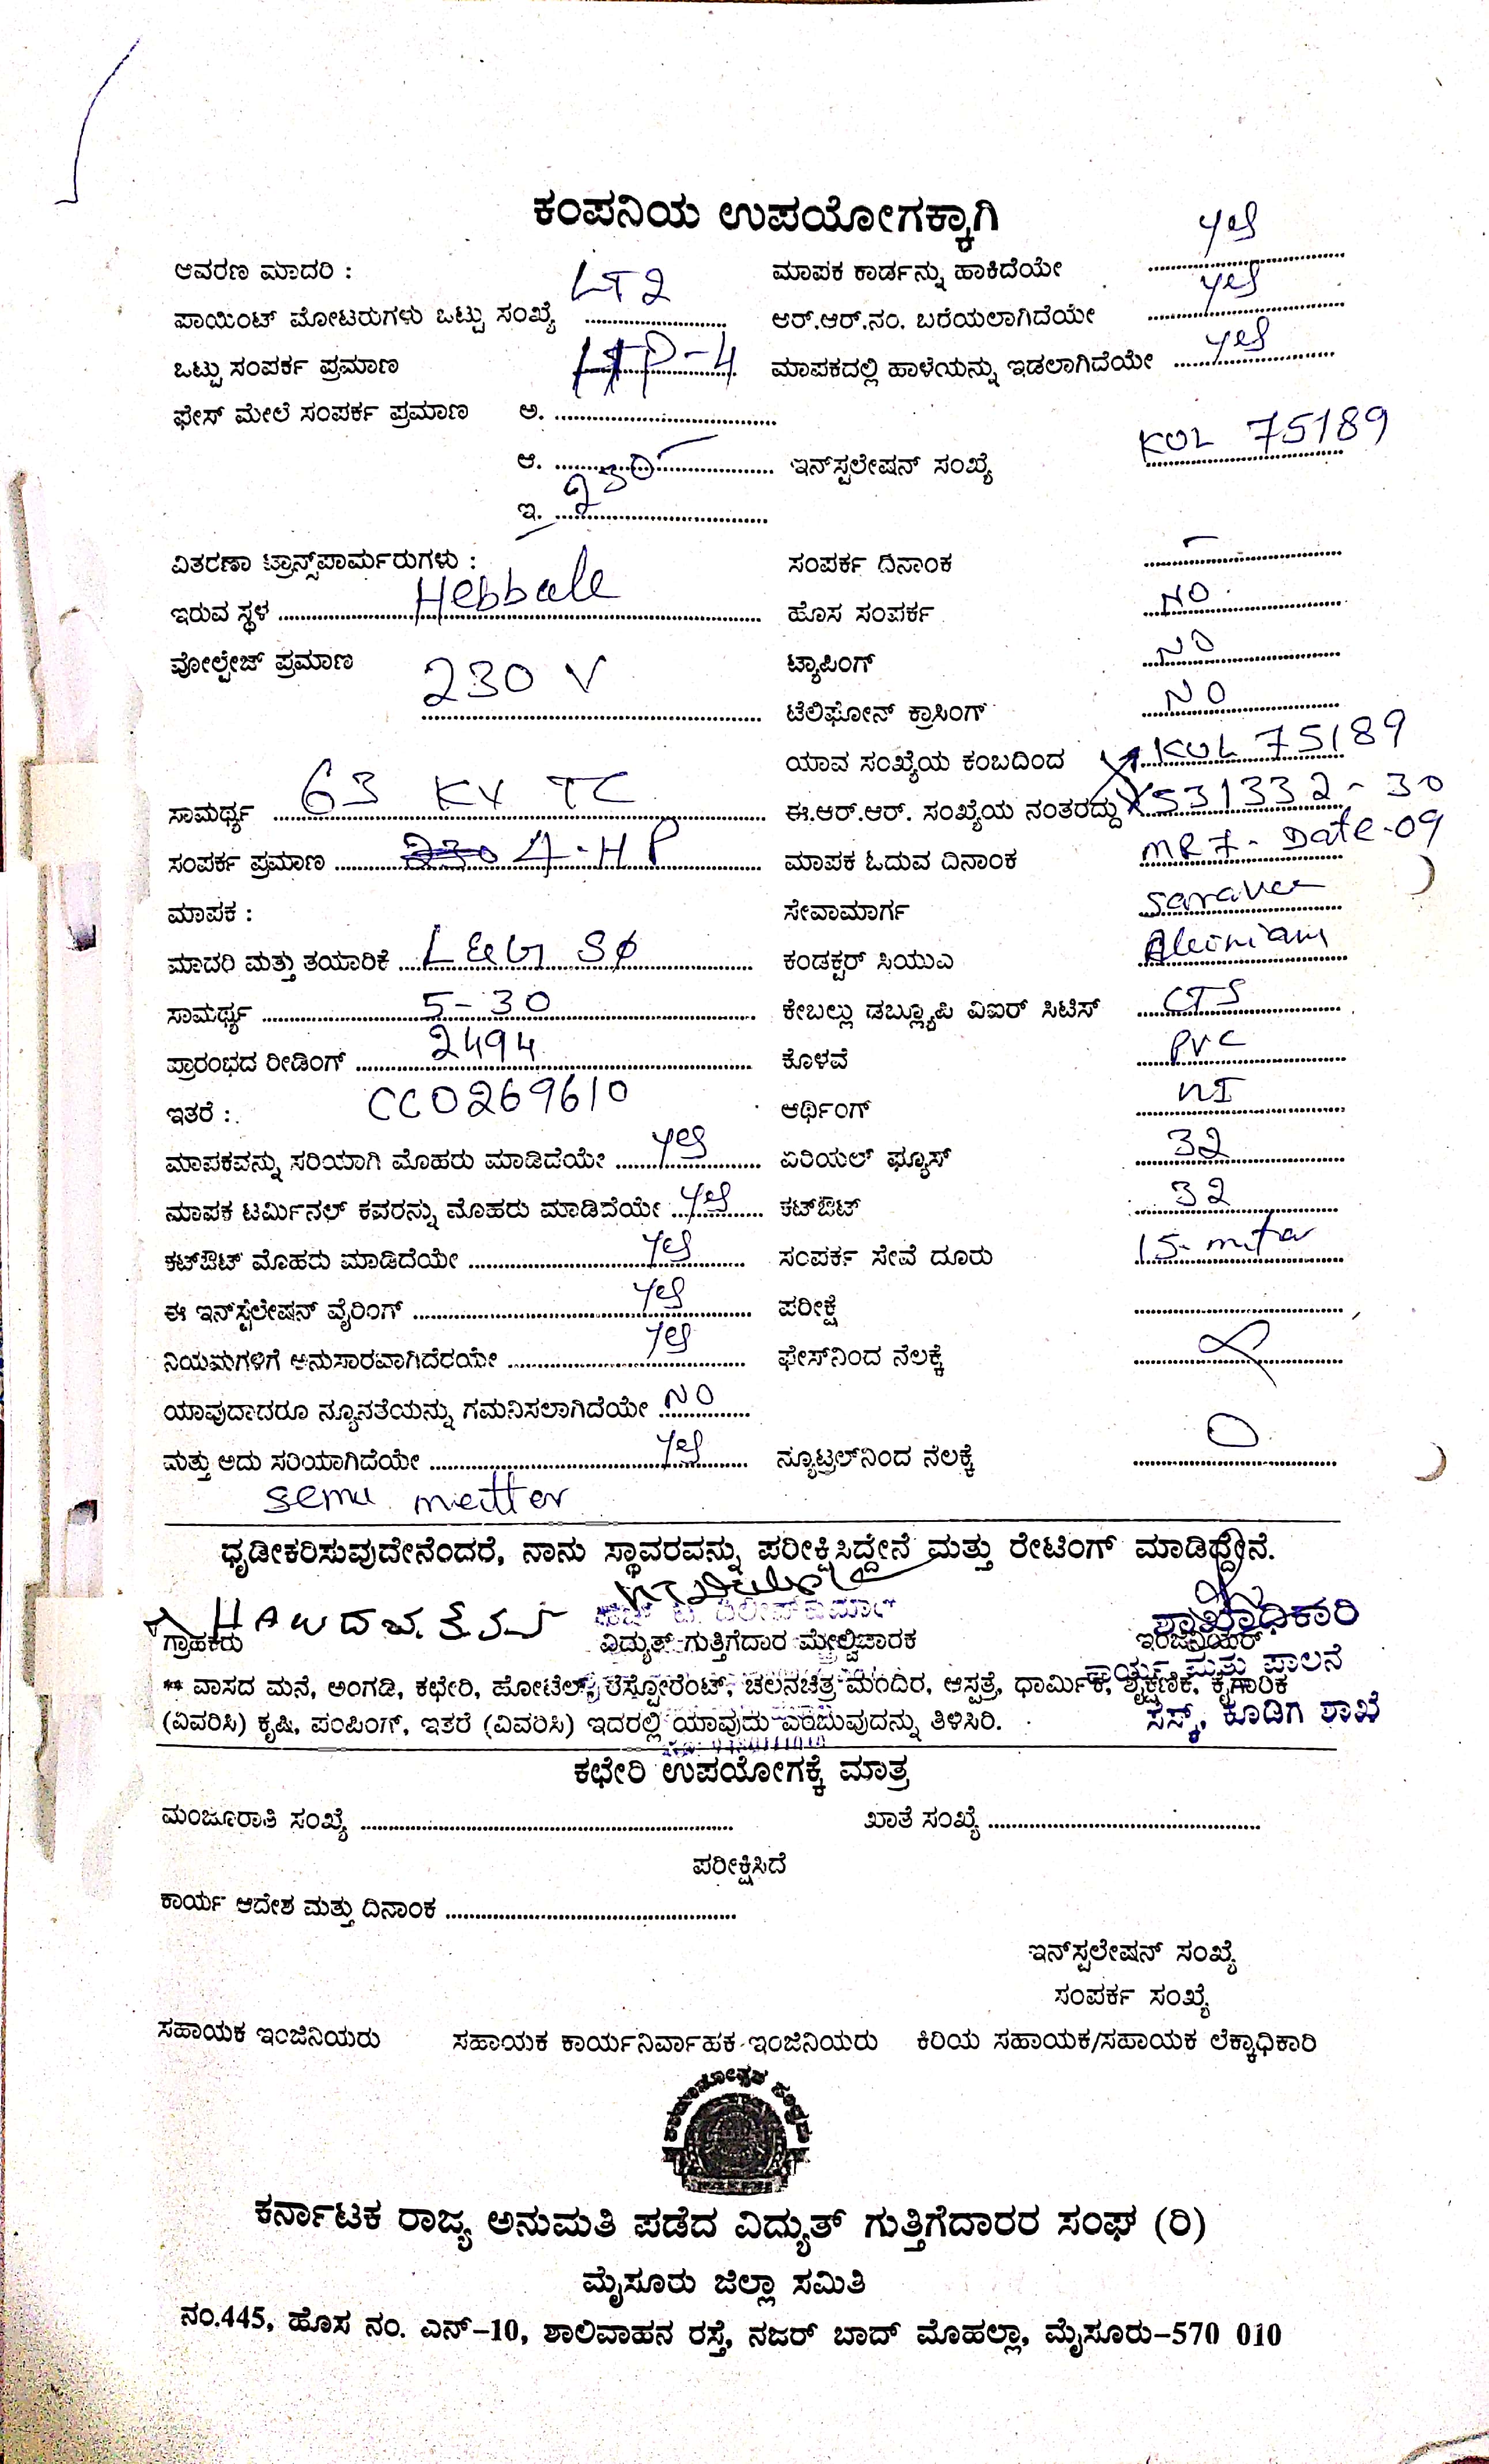 ಕಂಪನಿಯ ಉಪಯೋಗಕ್ಕಾಗಿ
ಆವರಣ ಮಾದರಿ : ಮಾಪಕ ಕಾರ್ಡನ್ನು ಹಾಕಿದೆಯೇ yes
ಪಾಯಿಂಟ್ ಮೋಟರುಗಳು ಒಟ್ಟು ಸಂಖ್ಯೆ LT2 ಆರ್.ಆರ್.ನಂ. ಬರೆಯಲಾಗಿದೆಯೇ yes
ಒಟ್ಟು ಸಂಪರ್ಕ ಪ್ರಮಾಣ HP-4 ಮಾಪಕದಲ್ಲಿ ಹಾಳೆಯನ್ನು ಇಡಲಾಗಿದೆಯೇ yes
ಫೇಸ್ ಮೇಲೆ ಸಂಪರ್ಕ ಪ್ರಮಾಣ ಅ.
ಆ. ಇನ್‌ಸ್ಟಲೇಷನ್ ಸಂಖ್ಯೆ KOL 75189
ಇ. 230
ವಿತರಣಾ ಟ್ರಾನ್ಸ್‌ಪಾರ್ಮರುಗಳು : ಸಂಪರ್ಕ ದಿನಾಂಕ –
ಇರುವ ಸ್ಥಳ Hebbale ಹೊಸ ಸಂಪರ್ಕ NO
ವೋಲ್ಟೇಜ್ ಪ್ರಮಾಣ 230 V ಟ್ಯಾಪಿಂಗ್ NO
ಟೆಲಿಫೋನ್ ಕ್ರಾಸಿಂಗ್ NO
ಯಾವ ಸಂಖ್ಯೆಯ ಕಂಬದಿಂದ KOL 75189
ಸಾಮರ್ಥ್ಯ 63 KV TC ಈ.ಆರ್.ಆರ್. ಸಂಖ್ಯೆಯ ನಂತರದ್ದು 531332-30
ಸಂಪರ್ಕ ಪ್ರಮಾಣ 4-HP ಮಾಪಕ ಓದುವ ದಿನಾಂಕ MR 7- Date-09
ಮಾಪಕ : ಸೇವಾಮಾರ್ಗ
ಮಾದರಿ ಮತ್ತು ತಯಾರಿಕೆ L&G ಕಂಡಕ್ಟರ್ ಸಿಯುಎ
ಸಾಮರ್ಥ್ಯ 5-30 ಕೇಬಲ್ಲು ಡಬ್ಲ್ಯೂಪಿ ವಿಐರ್ ಸಿಟಿಸ್ CTS
ಪ್ರಾರಂಭದ ರೀಡಿಂಗ್ 2494 ಕೊಳವೆ PVC
ಇತರೆ : CC0269610 ಆರ್ಥಿಂಗ್
ಮಾಪಕವನ್ನು ಸರಿಯಾಗಿ ಮೊಹರು ಮಾಡಿದೆಯೇ yes ಏರಿಯಲ್ ಫ್ಯೂಸ್ 32
ಮಾಪಕ ಟರ್ಮಿನಲ್ ಕವರನ್ನು ಮೊಹರು ಮಾಡಿದೆಯೇ yes ಕಟ್‌ಔಟ್ 32
ಕಟ್‌ಔಟ್ ಮೊಹರು ಮಾಡಿದೆಯೇ yes ಸಂಪರ್ಕ ಸೇವೆ ದೂರು 15-
ಈ ಇನ್‌ಸ್ಟೆಲೇಷನ್ ವೈರಿಂಗ್ yes ಪರೀಕ್ಷೆ
ನಿಯಮಗಳಿಗೆ ಅನುಸಾರವಾಗಿದೆರಯೇ yes ಫೇಸ್‌ನಿಂದ ನೆಲಕ್ಕೆ
ಯಾವುದಾದರೂ ನ್ಯೂನತೆಯನ್ನು ಗಮನಿಸಲಾಗಿದೆಯೇ NO
ಮತ್ತು ಅದು ಸರಿಯಾಗಿದೆಯೇ yes ನ್ಯೂಟ್ರಲ್‌ನಿಂದ ನೆಲಕ್ಕೆ 0
ಧೃಡೀಕರಿಸುವುದೇನೆಂದರೆ, ನಾನು ಸ್ಥಾವರವನ್ನು ಪರೀಕ್ಷಿಸಿದ್ದೇನೆ ಮತ್ತು ರೇಟಿಂಗ್ ಮಾಡಿದ್ದೇನೆ.
ಶಾಖಾಧಿಕಾರಿ
ಗ್ರಾಹಕರು ವಿದ್ಯುತ್ ಗುತ್ತಿಗೆದಾರ ಮೇಲ್ವಿಚಾರಕ ಇಂಜಿನಿಯರ್
ಕಾರ್ಯ ಮತ್ತು ಪಾಲನೆ
** ವಾಸದ ಮನೆ, ಅಂಗಡಿ, ಕಛೇರಿ, ಹೋಟೆಲ್, ರೆಸ್ಟೋರೆಂಟ್, ಚಲನಚಿತ್ರ ಮಂದಿರ, ಆಸ್ಪತ್ರೆ, ಧಾರ್ಮಿಕ, ಶೈಕ್ಷಣಿಕ, ಕೈಗಾರಿಕ
(ವಿವರಿಸಿ) ಕೃಷಿ, ಪಂಪಿಂಗ್, ಇತರೆ (ವಿವರಿಸಿ) ಇದರಲ್ಲಿ ಯಾವುದು ಎಂಬುವುದನ್ನು ತಿಳಿಸಿರಿ. ಸೆಸ್ಕ್, ಕೂಡಿಗೆ ಶಾಖೆ
ಕಛೇರಿ ಉಪಯೋಗಕ್ಕೆ ಮಾತ್ರ
ಮಂಜೂರಾತಿ ಸಂಖ್ಯೆ ಖಾತೆ ಸಂಖ್ಯೆ
ಪರೀಕ್ಷಿಸಿದೆ
ಕಾರ್ಯ ಆದೇಶ ಮತ್ತು ದಿನಾಂಕ
ಇನ್‌ಸ್ಟಲೇಷನ್ ಸಂಖ್ಯೆ
ಸಂಪರ್ಕ ಸಂಖ್ಯೆ
ಸಹಾಯಕ ಇಂಜಿನಿಯರು ಸಹಾಯಕ ಕಾರ್ಯನಿರ್ವಾಹಕ ಇಂಜಿನಿಯರು ಕಿರಿಯ ಸಹಾಯಕ/ಸಹಾಯಕ ಲೆಕ್ಕಾಧಿಕಾರಿ
ಕರ್ನಾಟಕ ರಾಜ್ಯ ಅನುಮತಿ ಪಡೆದ ವಿದ್ಯುತ್ ಗುತ್ತಿಗೆದಾರರ ಸಂಘ (ರಿ)
ಮೈಸೂರು ಜಿಲ್ಲಾ ಸಮಿತಿ
ನಂ.445, ಹೊಸ ನಂ. ಎನ್-10, ಶಾಲಿವಾಹನ ರಸ್ತೆ, ನಜರ್ ಬಾದ್ ಮೊಹಲ್ಲಾ, ಮೈಸೂರು-570 010